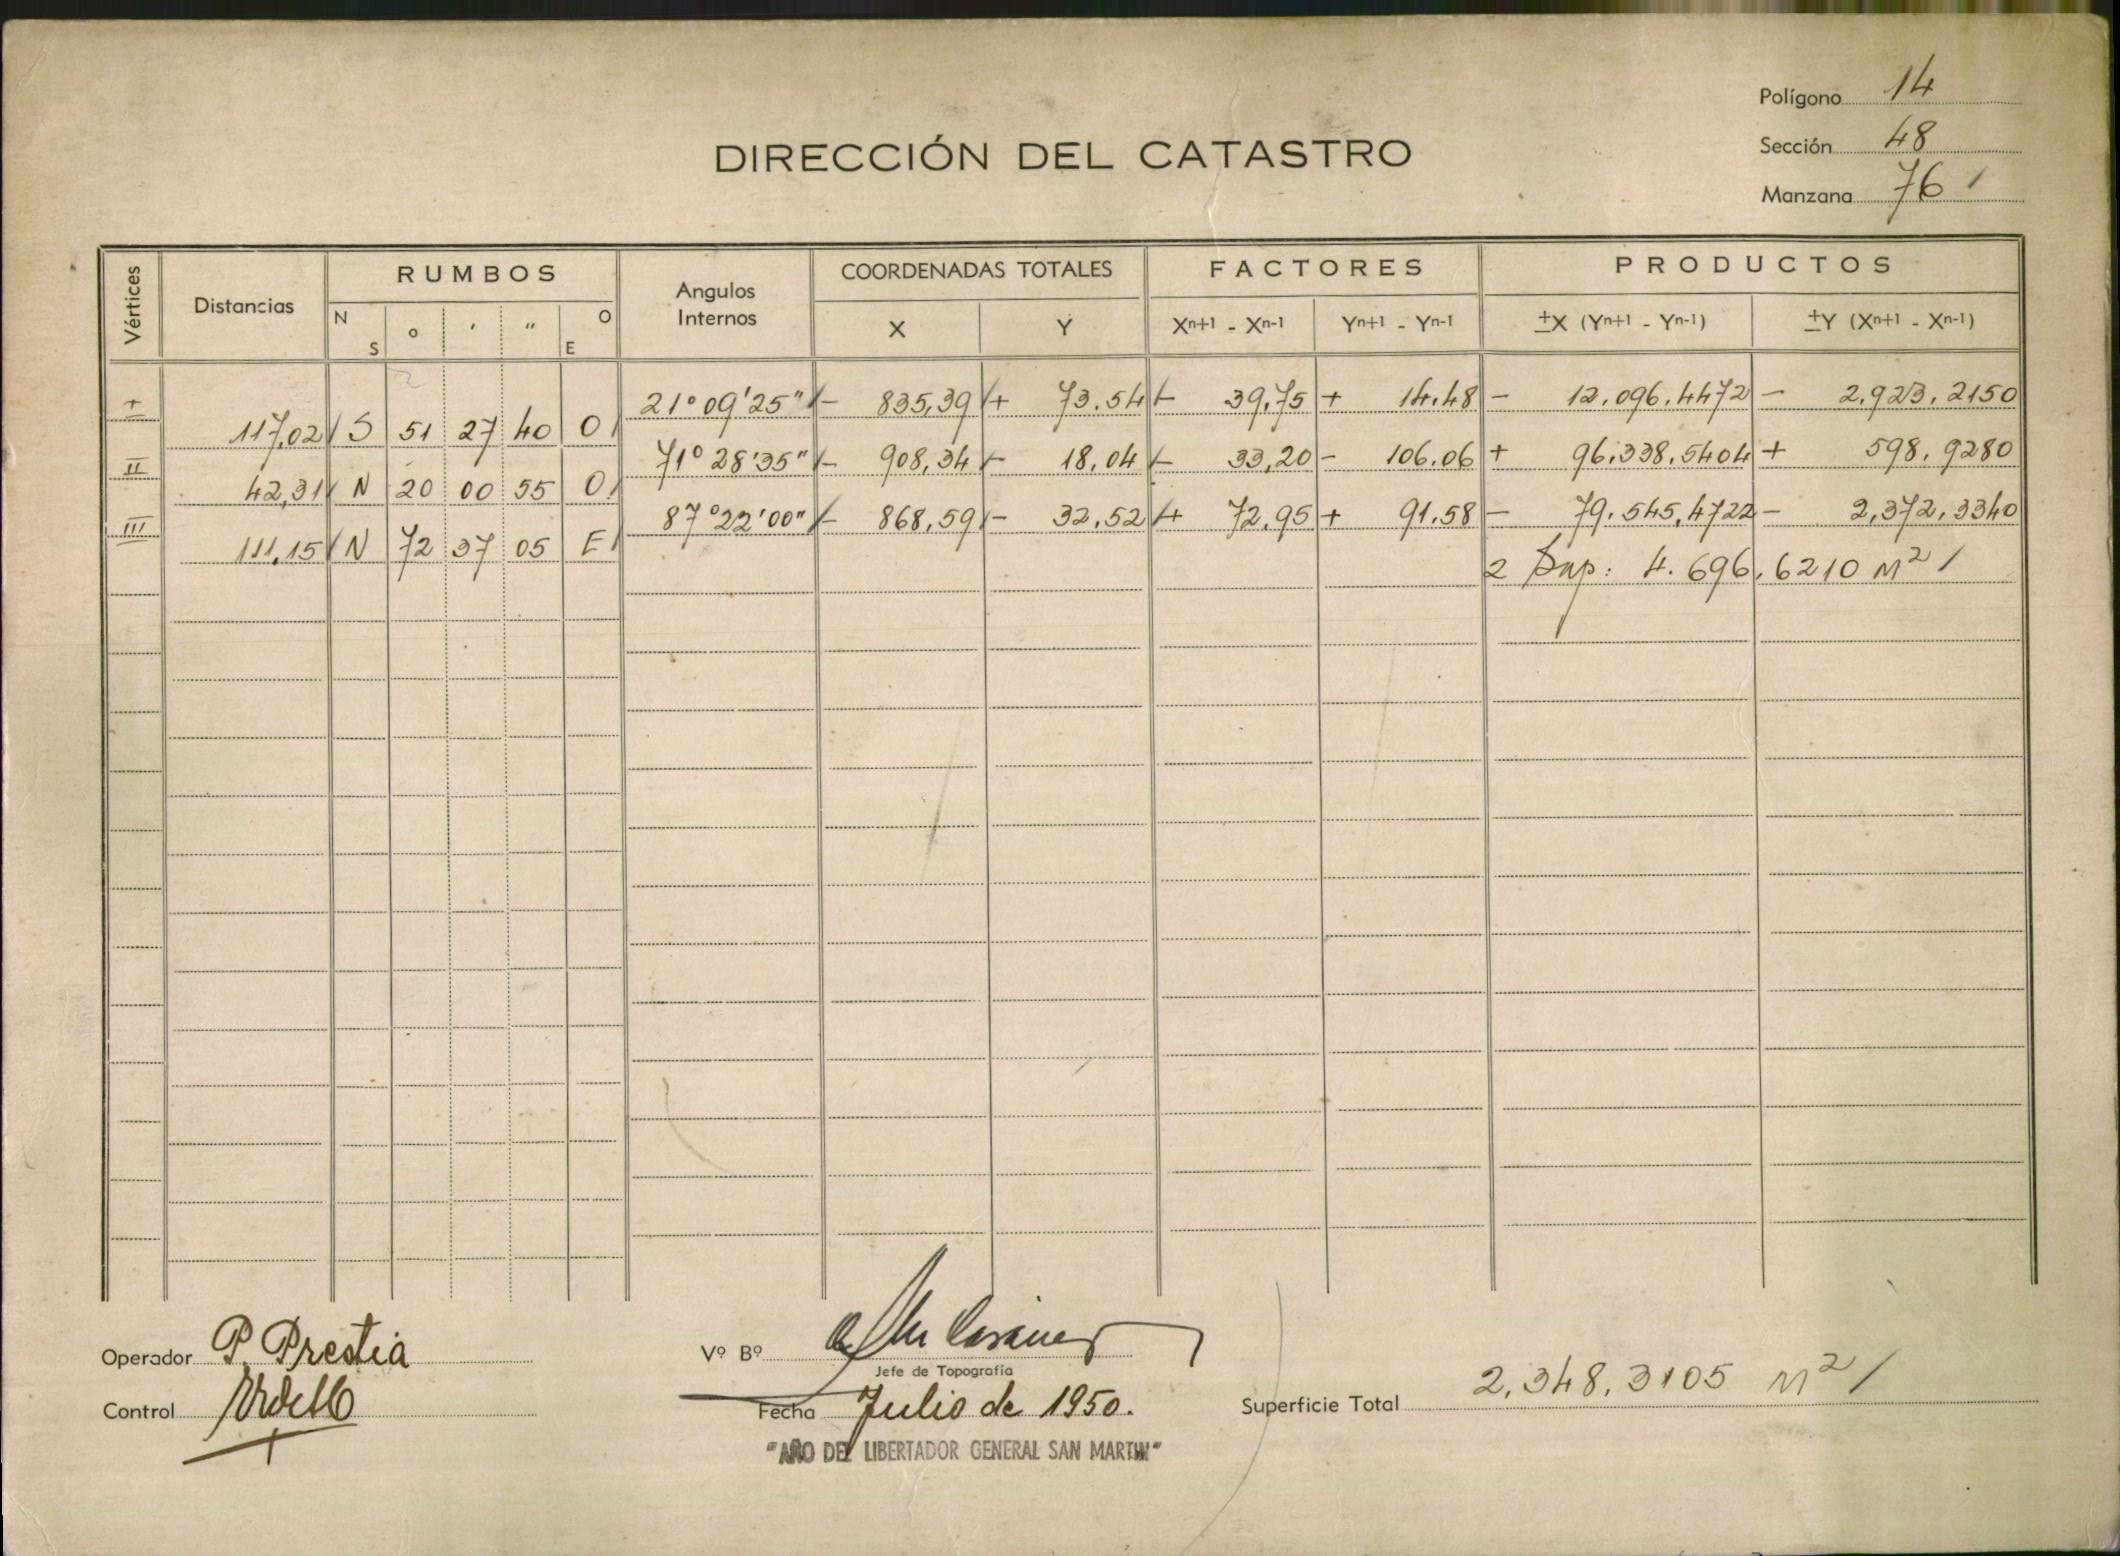 Polígono 14
DIRECCIÓN DEL CATASTRO
Sección 48
Manzana 76 /
Vértices Distancias RUMBOS Angulos Internos COORDENADAS TOTALES FACTORES PRODUCTOS
N S ° ' " O E X Y Xn+1 - Xn-1 Yn+1 - Yn-1 ±X (Yn+1 - Yn-1) ±Y (Xn+1 - Xn-1)
I 21° 09' 25" / - 835,39 / + 73.54 / - 39,75 + 14.48 - 12.096.4472 - 2.923.2150
117,02 / S 51 27 40 O /
II 71° 28' 35" / - 908,34 / - 18,04 / - 33,20 - 106.06 + 96.338.5404 + 598.9280
42,31 / N 20 00 55 O /
III 87° 22' 00" / - 868,59 / - 32,52 / + 72,95 + 91.58 - 79.545,4722 - 2,372,3340
111,15 / N 72 37 05 E /
2 Sup: 4.696.6210 M2 /
Operador P. Prestia
Vº Bº
Jefe de Topografía
Control
Fecha Julio de 1950.
Superficie Total 2,348,3105 M2 /
"AÑO DEL LIBERTADOR GENERAL SAN MARTIN"